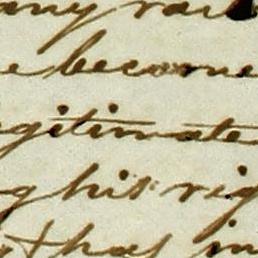 any rail
become
gitimate
g his rig
that in